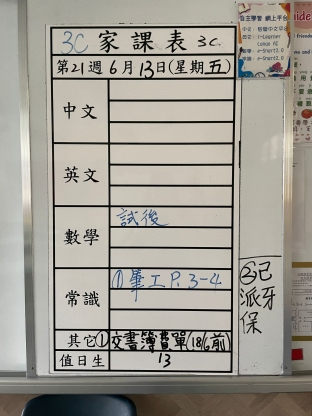 3C 家課表 3C
第21週6月13日(星期五)
中文
英文
數學 試後
常識 ①筆工P.3-4
其它 ①交書簿費單(18/6前)
值日生 13
②已派牙保
自主學習 網上平台